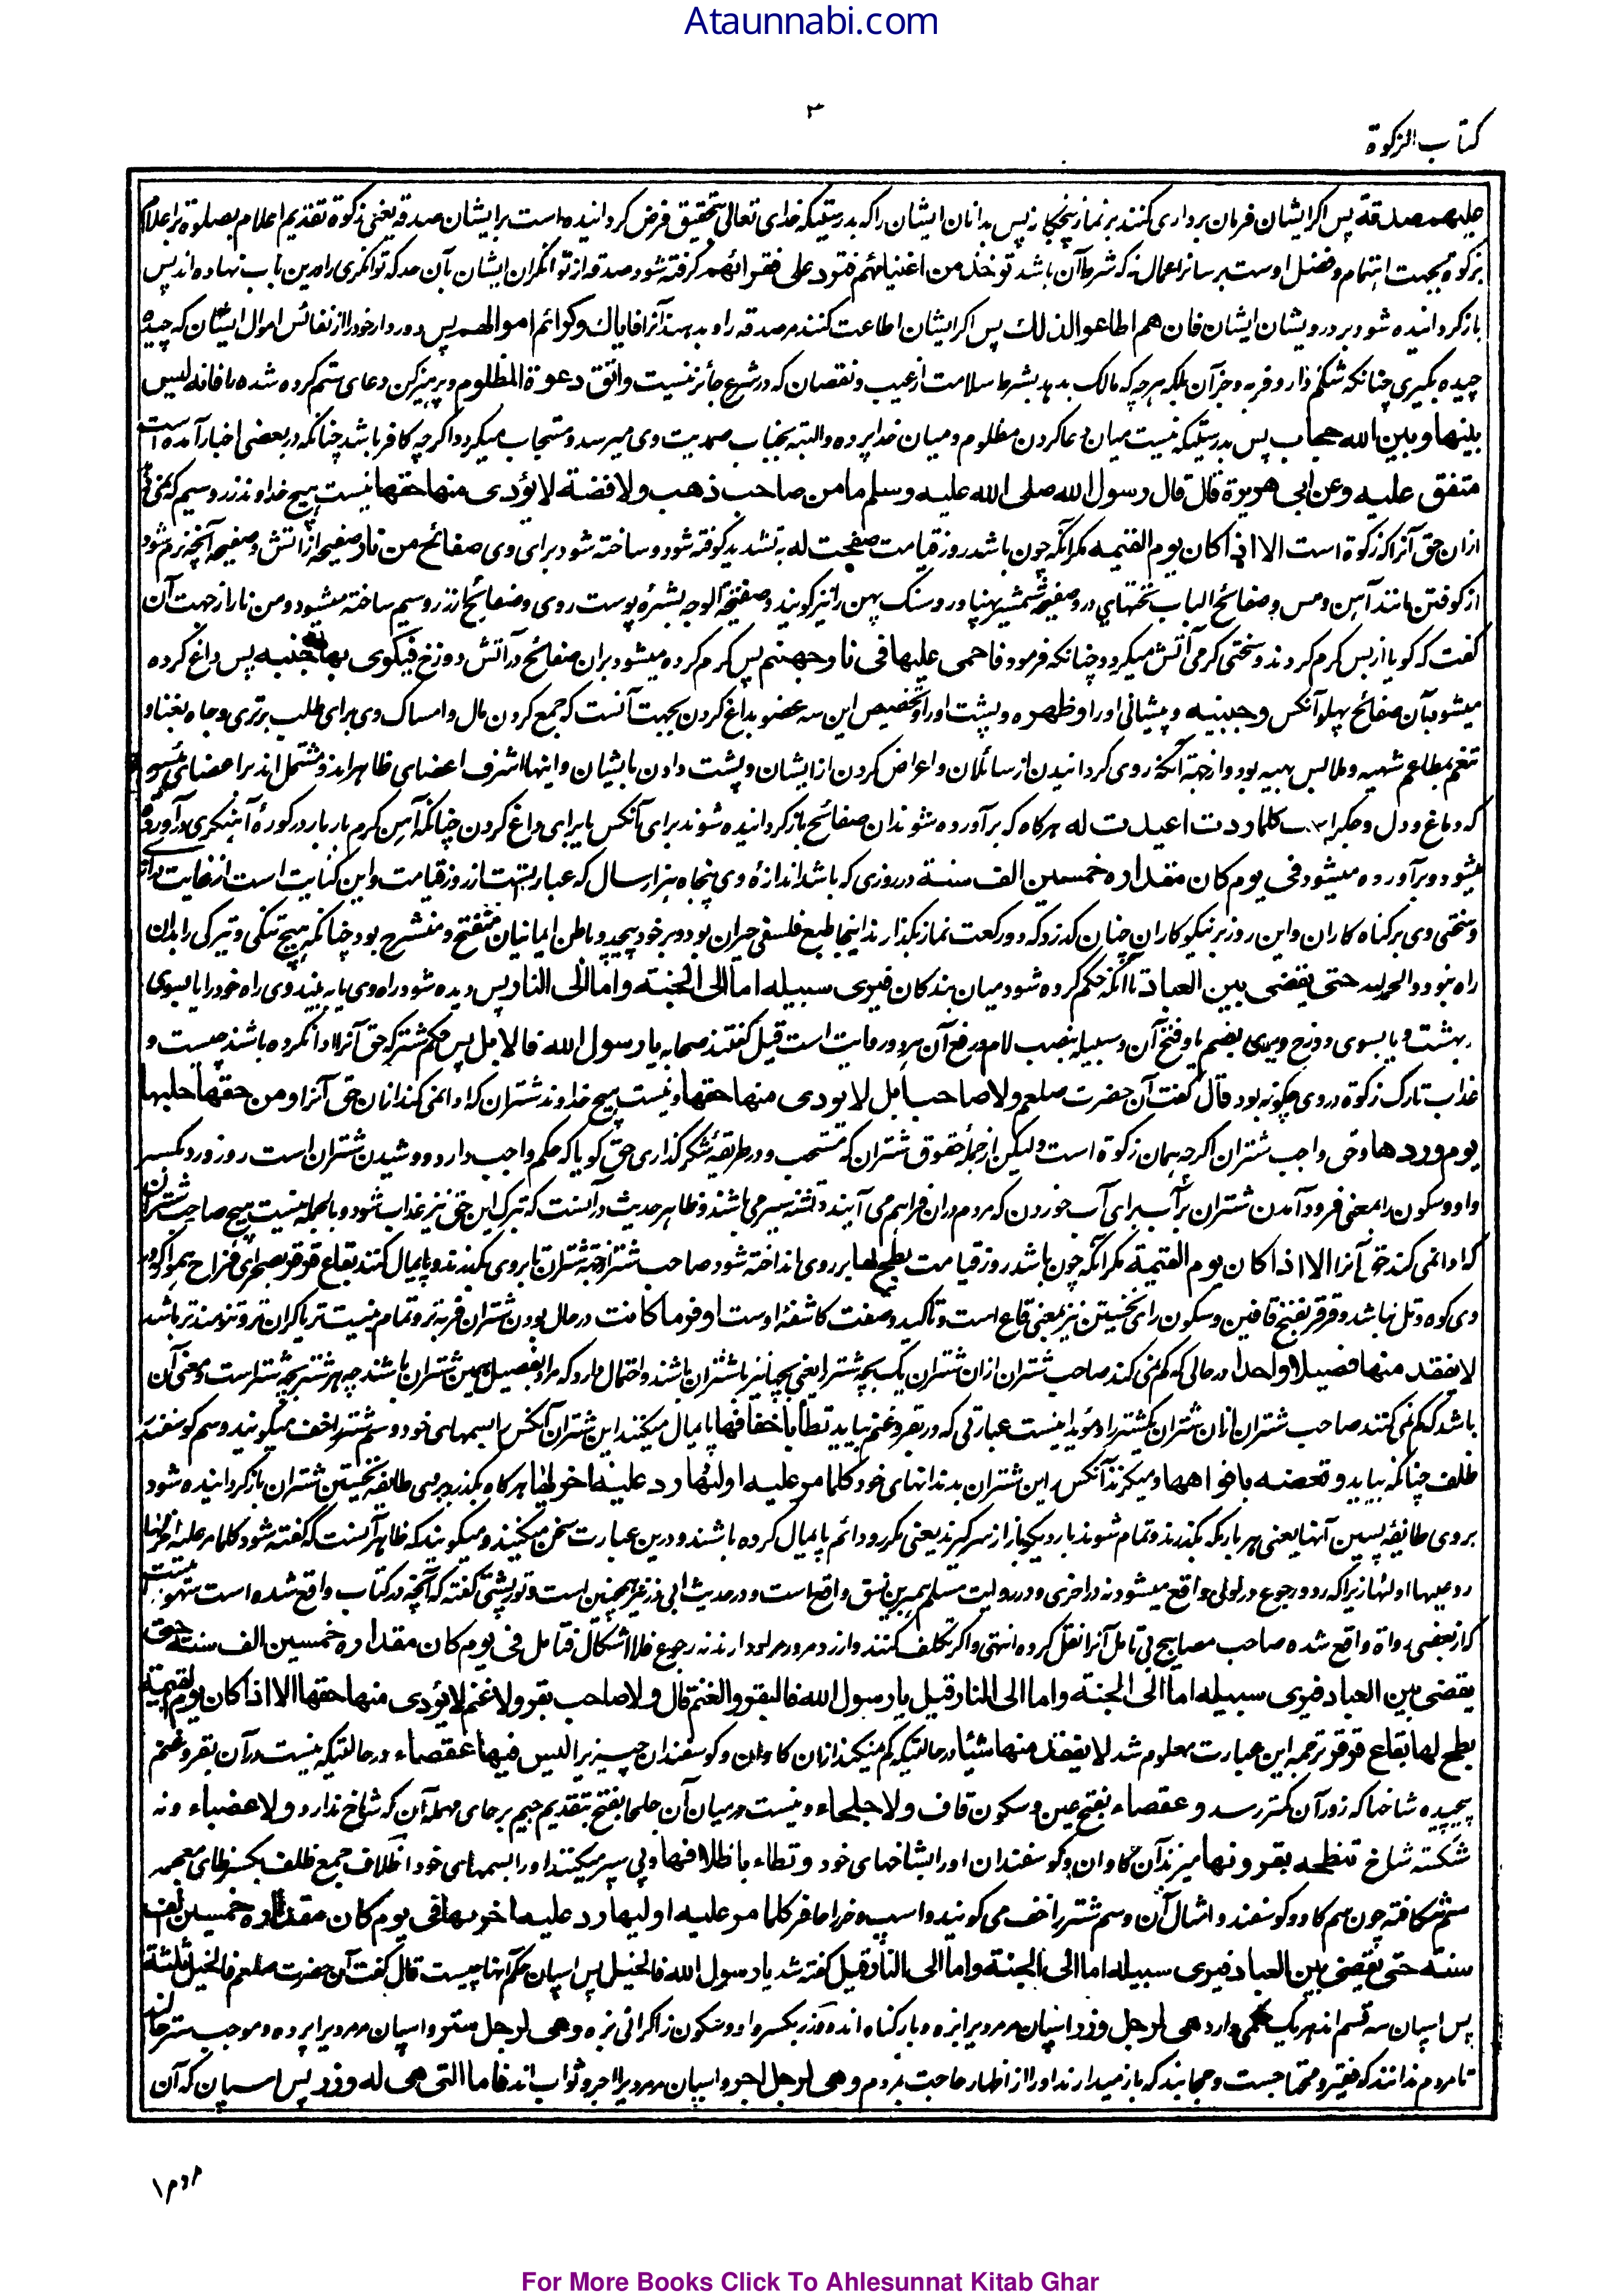 Ataunnabi.com
۳
کتاب الزکوة
علیهم صدقة پس اگر ایشان فرمان برداری کنند بر نماز پنجگانه پس بدانان ایشان را که بدرستیکه خدای تعالی بتحقیق فرض گردانیده است بر ایشان صدقه یعنی زکوة تقدیم اعلام بصلوة بر اعلام
بزکوة بجهت اهتمام و فضل اوست بر سائر اعمال نه که شرط آن باشد توخذ من اغنیائهم فترد علی فقرائهم گرفته شود صدقه از توانگران ایشان بآن حد که توانگری را درین باب نهاده اند پس
باز گردانیده شود بر درویشان ایشان فان هم اطاعوا لذلك پس اگر ایشان اطاعت کنند مر صدقه را و بدهند آنرا فایاك وکرائم اموالهم پس دور دار خود را از نفائس اموال ایشان که چیده
چیده بگیری چنانکه شکم دار و فربه و جز آن بلکه هر چه که مالک بدهد بشرط سلامت از عیب و نقصان که در شرع جائز نیست واتق دعوة المظلوم و پرهیز کن دعای ستم کرده شده را فانه لیس
بینها وبین الله حجاب پس بدرستیکه نیست میان دعا کردن مظلوم و میان خدا پرده و البته بجناب صمدیت وی میرسد و مستجاب میگردد اگرچه کافر باشد چنانکه در بعضی اخبار آمده است
متفق علیه وعن ابی هریرة قال قال رسول الله صلی الله علیه وسلم ما من صاحب ذهب ولا فضة لا یؤدی منها حقها نیست هیچ خداوند زر و سیم که نمی
ازان حق آنرا که زکوة است الا اذا کان یوم القیمه مگر آنکه چون باشد روز قیامت صفحت له به تشدید کوفته شود و ساخته شود برای وی صفائح من نار صفیحها از آتش و صفیحه آنچه نرم شود
از کوفتن مانند آهن و مس و صفائح الباب تختهای در و صفیحه شمشیر پهنا و ر و سنگ پهن را نیز گویند و صفیحة الوجه بشرهٔ پوست روی و صفائح از زر و سیم ساخته میشود و من نار از جهت آن
گفت که گویا از بس گرم کردند و سختی گرمی آتش میگردد چنانکه فرمود فاحمی علیها فی نار جهنم پس گرم کرده میشود بران صفائح در آتش دوزخ فیکوی بها جنبه پس داغ کرده
میشود بآن صفائح پهلو آنکس وجبینه و پیشانی او را وظهره و پشت او را و تخصیص این سه عضو بداغ کردن بجهت آنست که جمع کردن مال و امساک وی برای طلب برتری و جاه بغنا و
تنعم بمطاعم شهیه و ملابس بهیه بود و از جهة آنکه روی گردانیدن از سائلان و اعراض کردن از ایشان و پشت دادن بایشان و اینها اشرف اعضای ظاهر اند و مشتمل اند بر اعضای
که دماغ و دل و جگر است کلما ردت اعیدت له هرگاه که برآورده شوند ان صفائح باز گردانیده شوند برای آنکس یا برای داغ کردن چنانکه آهن گرم باربار در کورهٔ آهنگری در آورده
میشود و برآورده میشود فی یوم کان مقداره خمسین الف سنة در روزی که باشد اندازهٔ وی پنجاه هزار سال که عبارتست از روز قیامت و این کنایت است از غایت
و سختی وی بر گناه کاران و این روز بر نیکوکاران چنان گذرد که دو رکعت نماز بگذارند اینجا طبع فلسفی حیران بود و بر خود پیچد و باطن ایمانیان منفتح و منشرح بود چنانکه هیچ تنگی و تیرگی را بدان
راه نبود والحمدلله حتی یقضی بین العباد تا آنکه حکم کرده شود میان بندگان فیری سبیله اما الی الجنة واما الی النار پس دیده شود راه وی یا به بیند وی راه خود را یا بسوی
بهشت و یا بسوی دوزخ و یری بضم یا و فتح آن و سبیله بنصب لام و رفع آن هر دو روایت است قیل گفتند صحابه یا رسول الله فالابل پس حکم شتر که حق آنرا ادا نکرده باشد چیست و
عذاب تارک زکوة در وی چگونه بود قال گفت آن حضرت صلعم ولا صاحب ابل لا یودی منها حقها و نیست هیچ خداوند شتران که ادا نمی کند ازان حق آنرا ومن حقها حلبها
یوم وردها و حق واجب شتران اگرچه همان زکوة است و لیکن از جملهٔ حقوق شتران که مستحب و در طریقهٔ شکر گذاری حق گویا که حکم واجب دارد دوشیدن شتران است روز ورد بکسر
واو و سکون را بمعنی فرود آمدن شتران بر آب برای آب خوردن که مردم دران فراهم می آیند و تشنه سیر می باشند و ظاهر حدیث در آنست که ترک این حق نیز عذاب شود و بالجمله نیست هیچ صاحب شتران
که ادا نمی کند حق آنرا الا اذا کان یوم القیمة مگر آنکه چون باشد روز قیامت بطح لها بر روی انداخته شود صاحب شتران از جهة شتران تا بر وی بگذرند و پایمال کنند بقاع قرقر بصحرای فراخ هموار که در
وی کوه و تل نباشد و قرقر بفتح قافین و سکون رای نخستین نیز بمعنی قاع است و تاکید و صفت کاشفهٔ اوست اوفر ما کانت در حال بودن شتران فربه تر و تمام نیست تر یا گران تر و تنومند تر باشد
لا یفقد منها فصیلا واحدا در حالی که کم نمی کند صاحب شتران ازان شتران یک بچه شتر را یعنی بچها نیز با شتران باشند و احتمال دارد که مراد بفصیل همین شتران باشند چه هر شتر بچه شتر است و معنی آن
باشد که کم نمی کنند صاحب شتران ازان شتران یک شتر را و مؤید اینست عبارتی که در بقر و غنم بیاید تطأه باخفافها پایمال میکنند این شتران آنکس را بسمهای خود و سم شتر را خف میگویند و سم گوسفند
ظلف چنانکه بیاید وتعضه بافواهها و میگزند آنکس را این شتران بدندانهای خود کلما مر علیه اولٰها رد علیه اخرٰها هر گاه بگذرد بر وی طائفه نخستین شتران باز گردانیده شود
بر وی طائفهٔ پسین آنها یعنی هر بار که بگذرند و تمام شوند بار دیگر باز از سر گیرند یعنی مکرر و دائم پایمال کرده باشند و درین عبارت سخن میکنند و میگویند که ظاهر آنست که گفته شود کلما مر علیه اخرٰها
رد علیها اولٰها زیرا که رد و رجوع در اولی واقع میشود نه در اخری و در روایت مسلم بهمین نسق واقع است و در حدیث ابی ذر نیز همچنین است و توربشتی گفته که آنچه در کتاب واقع شده است سهو
که از بعضی رواة واقع شده صاحب مصابیح بی تامل آنرا نقل کرده انتهی و اگر تکلف کنند و از رد مرور مراد دارند نه رجوع فلا اشکال فتامل فی یوم کان مقداره خمسین الف سنة حتی
یقضی بین العباد فیری سبیله اما الی الجنة واما الی النار قیل یا رسول الله فالبقر والغنم قال ولا صاحب بقر ولا غنم لا یؤدی منها حقها الا اذا کان یوم القیمة
بطح لها بقاع قرقر ترجمه این عبارت معلوم شد لا یفقد منها شیئا در حالتیکه کم نمیکند ازان گاوان و گوسفندان چیزیرا لیس فیها عقصاء در حالتیکه نیست در آن بقر و غنم
پیچیده شاخها که زور آن کمتر رسد و عقصاء بفتح عین و سکون قاف ولا جلحاء و نیست در میان آن جلحا بفتح بتقدیم جیم بر حای مهمله آن که شاخ ندارد ولا عضباء و نه
شکسته شاخ تنطحه بقرونها میزند آن گاوان و گوسفندان او را بشاخهای خود وتطاءه باظلافها و پی سپر میکنند او را بسمهای خود اظلاف جمع ظلف بکسر ظای معجمه
سم شگافته چون سم گاو و گوسفند و امثال آن و سم شتر را خف می گویند و اسپ و خر را حافر کلما مر علیه اولیها رد علیه اخریها فی یوم کان مقداره خمسین الف
سنة حتی یقضی بین العباد فیری سبیله اما الی الجنة واما الی النار قیل گفته شد یا رسول الله فالخیل پس اسپان حکم آنها چیست قال گفت آن حضرت صلعم فالخیل ثلثة
پس اسپان سه قسم اند هر یک حکمی دارد هی لرجل وزر اسپان مر مردیرا بزه و بار گناه اند و وزر بکسر واو و سکون زا گرانی بزه وهی لرجل ستر و اسپان مر مردیرا پرده و موجب ستر حال اند
تا مردم ندانند که فقیر و محتاجست و حجابند که باز میدارند او را از اظهار حاجت بمردم وهی لرجل اجر و اسپان مر مردیرا اجر و ثواب اند فاما التی هی له وزر پس اسپان که آن
For More Books Click To Ahlesunnat Kitab Ghar